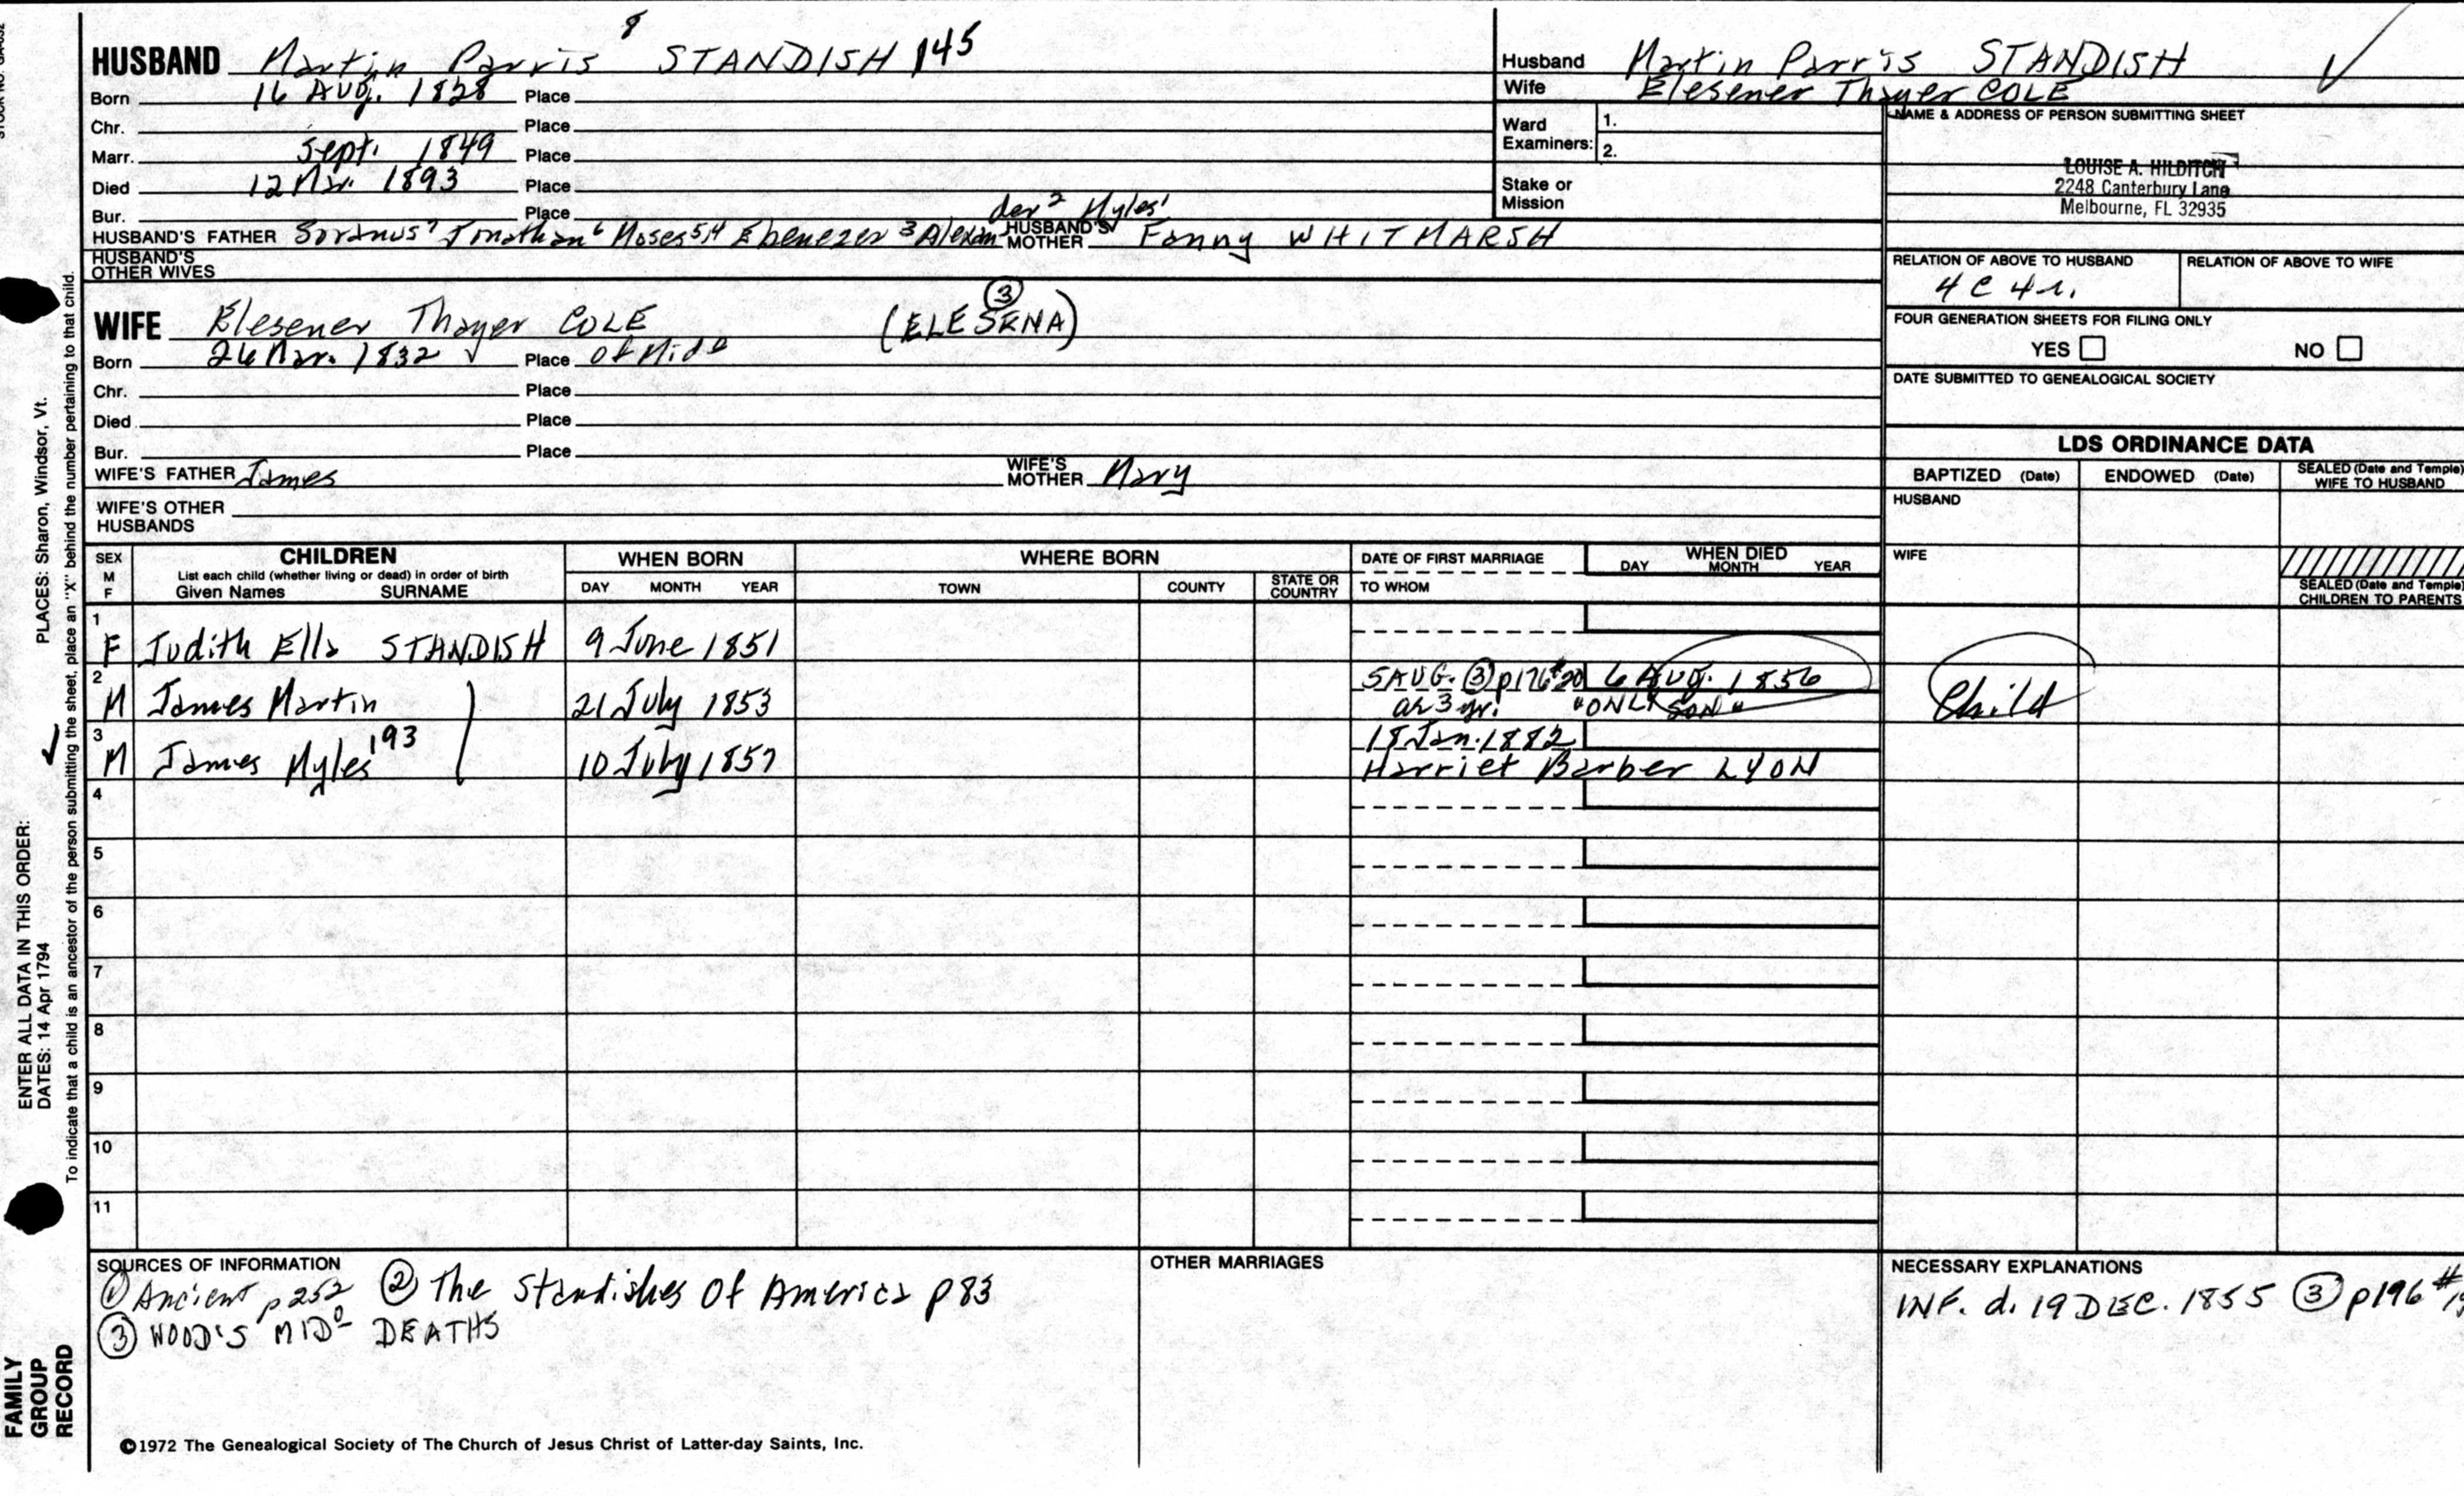 HUSBAND Martin Parris 8 STANDISH 145
Born 16 Aug. 1828 Place
Chr. Place
Marr. Sept. 1849 Place
Died 12 Mar. 1893 Place
Bur. Place
HUSBAND'S FATHER Soranus 7 Jonathan 6 Moses 5,4 Ebenezer 3 Alexander 2 Myles 1 HUSBAND'S MOTHER Fanny WHITMARSH
HUSBAND'S OTHER WIVES
WIFE Elesener Thayer COLE (ELESENA) ③
Born 26 Mar. 1832 Place of Midº
Chr. Place
Died Place
Bur. Place
WIFE'S FATHER James WIFE'S MOTHER Mary
WIFE'S OTHER HUSBANDS
Husband Martin Parris STANDISH
Wife Elesener Thayer COLE
Ward Examiners: 1.
2.
Stake or Mission
NAME & ADDRESS OF PERSON SUBMITTING SHEET
LOUISE A. HILDITCH
2248 Canterbury Lane
Melbourne, FL 32935
RELATION OF ABOVE TO HUSBAND RELATION OF ABOVE TO WIFE
4 C 4 r.
FOUR GENERATION SHEETS FOR FILING ONLY
YES NO
DATE SUBMITTED TO GENEALOGICAL SOCIETY
LDS ORDINANCE DATA
BAPTIZED (Date) ENDOWED (Date) SEALED (Date and Temple) WIFE TO HUSBAND
HUSBAND
WIFE
SEALED (Date and Temple) CHILDREN TO PARENTS
SEX M F
CHILDREN
List each child (whether living or dead) in order of birth
Given Names SURNAME
WHEN BORN
DAY MONTH YEAR
WHERE BORN
TOWN COUNTY STATE OR COUNTRY
DATE OF FIRST MARRIAGE
TO WHOM
WHEN DIED
DAY MONTH YEAR
1 F Judith Ella STANDISH 9 June 1851
2 M James Martin 21 July 1853 5 AUG. ③ p176 #20 6 Aug. 1856 Child
ae 3 yr. "ONLY SON"
3 M James Myles 193 10 July 1857 18 Jan. 1882
Harriet Barber LYON
4
5
6
7
8
9
10
11
SOURCES OF INFORMATION
① Ancient p 252 ② The Standishes of America p 83
③ WOOD'S MIDº DEATHS
OTHER MARRIAGES
NECESSARY EXPLANATIONS
INF. d. 19 DEC. 1855 ③ p196 #
©1972 The Genealogical Society of The Church of Jesus Christ of Latter-day Saints, Inc.
FAMILY GROUP RECORD
ENTER ALL DATA IN THIS ORDER:
DATES: 14 Apr 1794
PLACES: Sharon, Windsor, Vt.
To indicate that a child is an ancestor of the person submitting the sheet, place an "X" behind the number pertaining to that child.